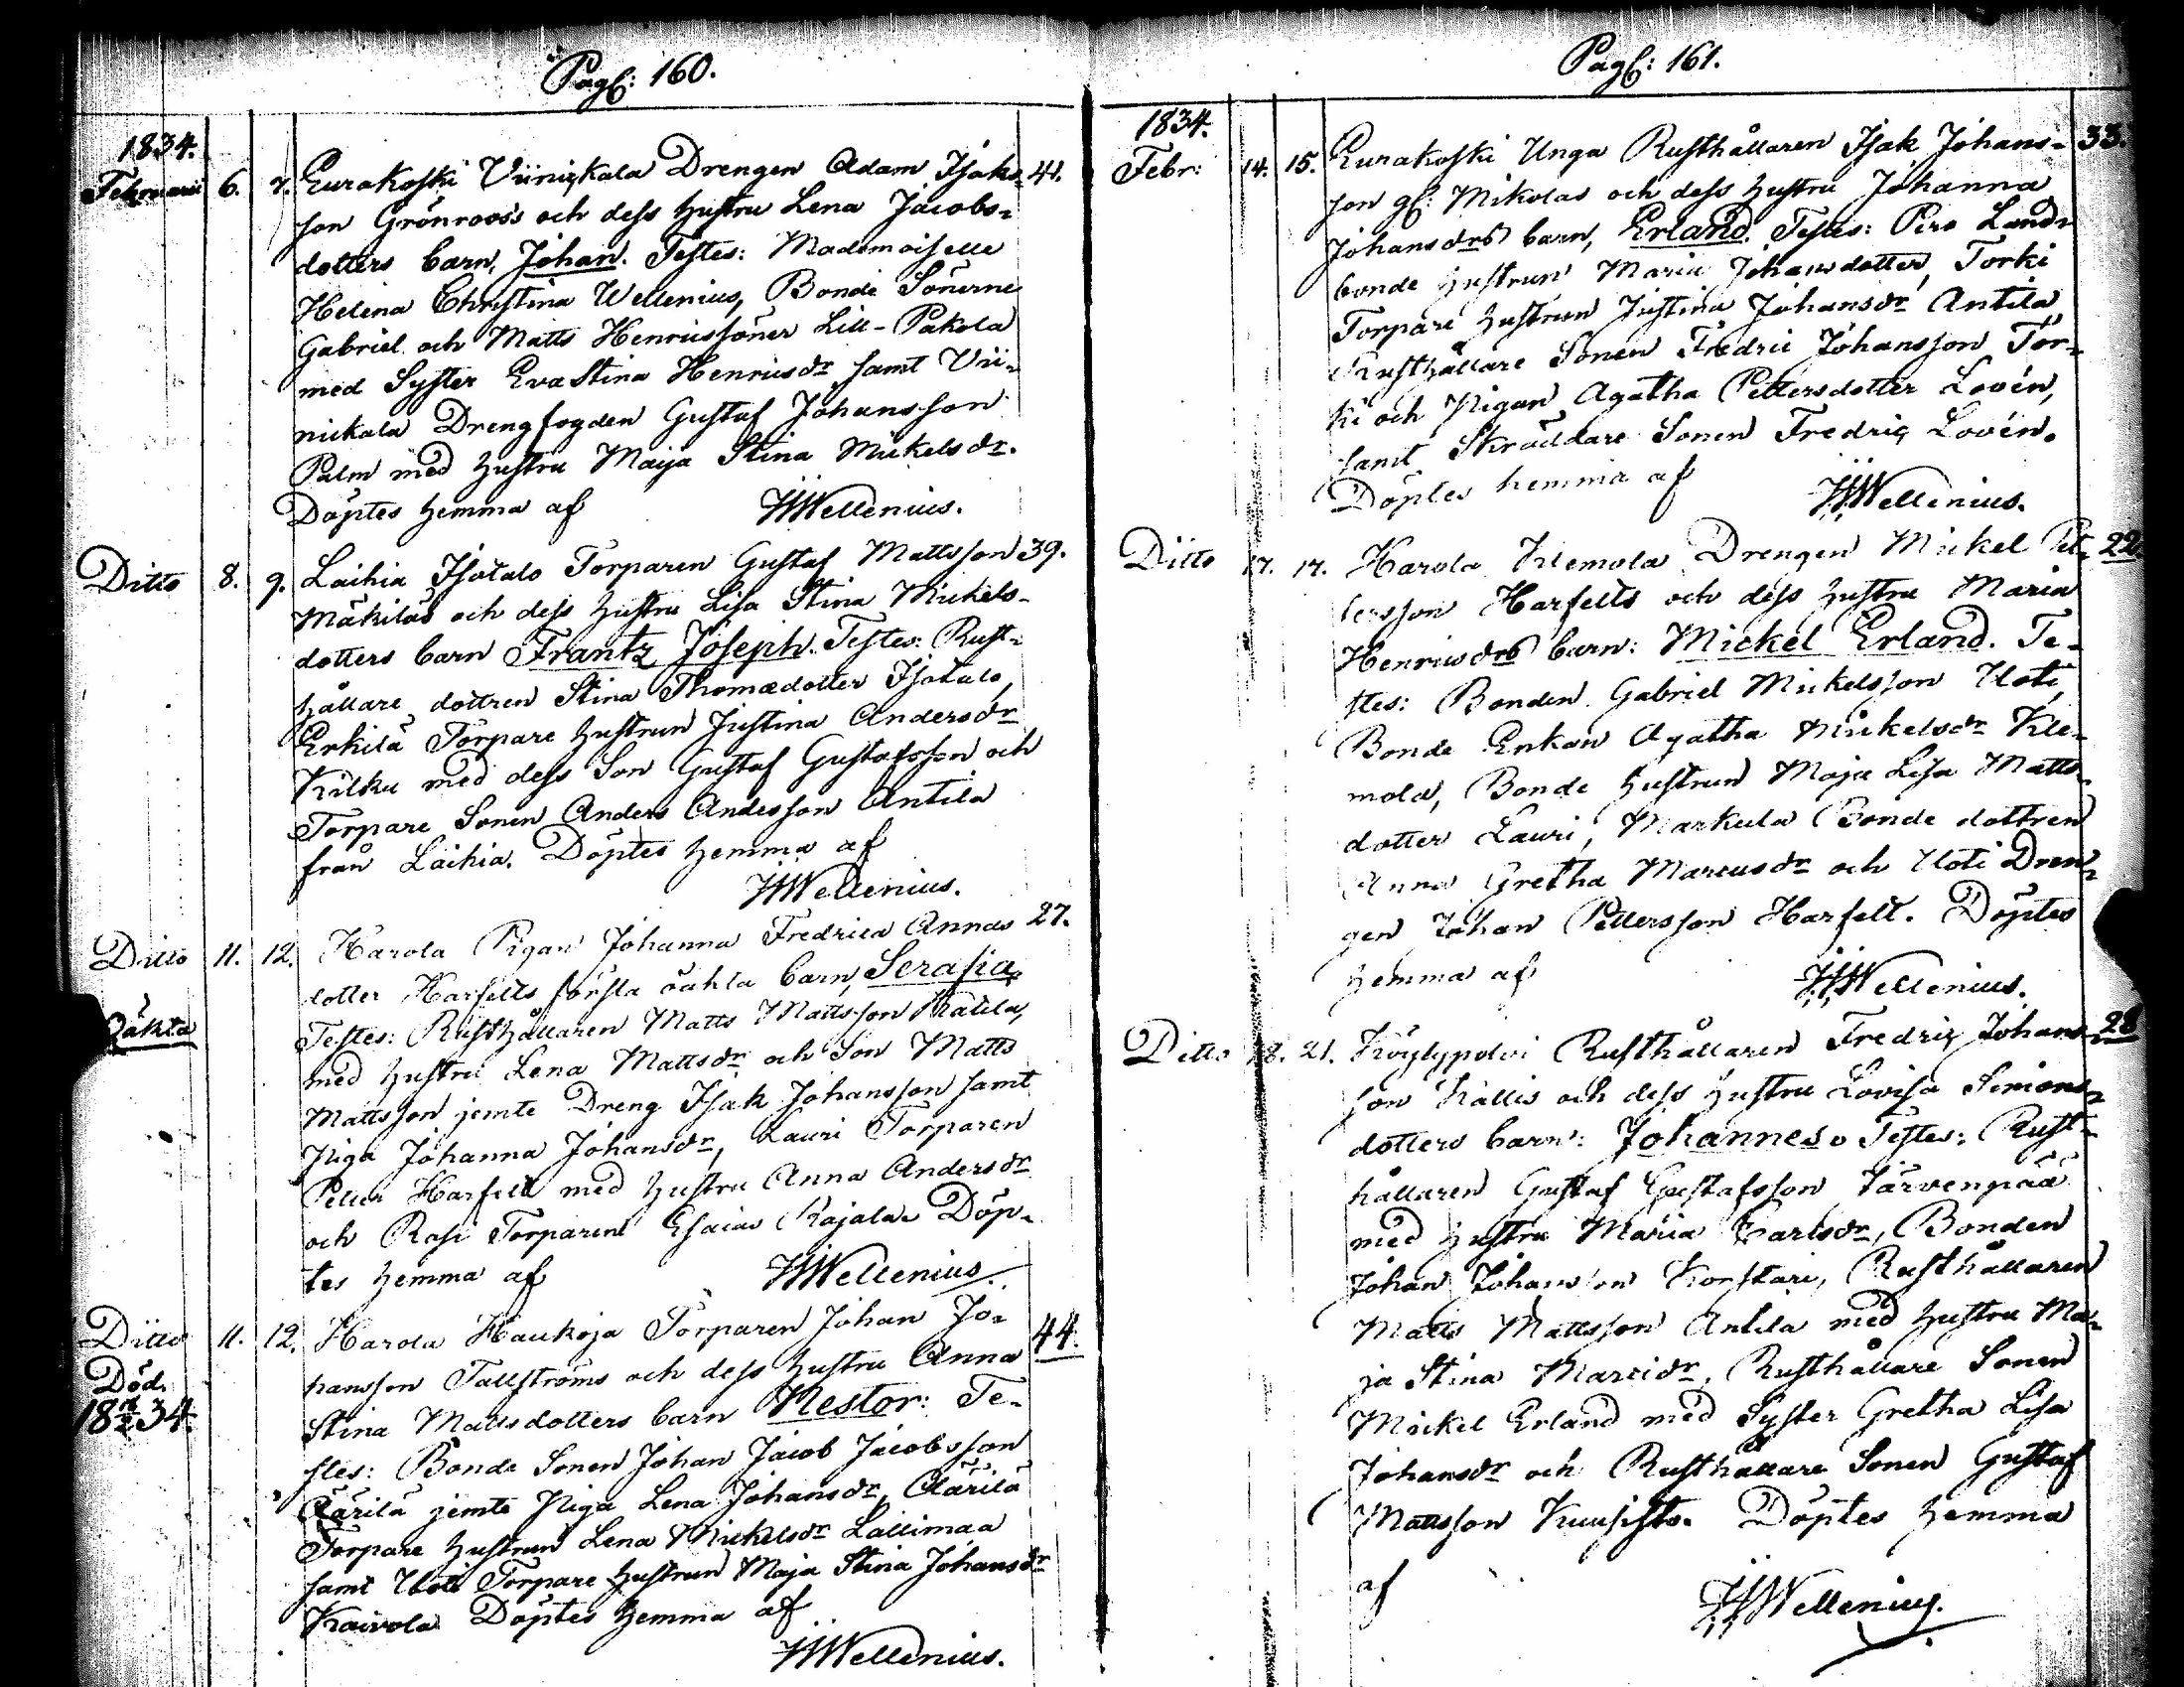 Pag: 160.
1834.
Februarii 6. 7. Eurakoski Viinickala Drengen Adam Isaks- 41.
son Grönroos's och dess hustru Lena Jacobs-
dotters barn, Johan. Testes: Mademoiselle
Helena Christina Wellenius, Bonde Sönerne
Gabriel och Matts Henricssöner Lill-Pakola
med Syster Eva Stina Henricsdr samt Vii-
nickala Drengfogden Gustaf Johansson
Palm med hustru Maja Stina Mickelsdr.
Döptes hemma af HWellenius.
Ditto 8. 9. Laihia Isotalo Torparen Gustaf Mattsson 39.
Mäkiläs och dess hustru Lisa Stina Mickels-
dotters barn Frantz Joseph. Testes: Rust-
hållare dottren Stina Thomædotter Isotalo,
Erkilä Torpare hustrun Justina Andersdr
Kilku med dess Son Gustaf Gustafsson och
Torpare Sonen Anders Andersson Antila
från Laihia. Döptes hemma af
HWellenius.
Ditto 11. 12. Harola Pigan Johanna Fredrica Annas 27.
dotter Harfelts första oächta barn, Serafia.
Oäkta
Testes: Rusthållaren Matts Mattsson Katila,
med hustru Lena Mattsdr och Son Matts
Mattsson jemte Dreng Isak Johansson samt
Piga Johanna Johansdr, Lauri Torparen
Petter Harfelt med hustru Anna Andersdr
och Rasi Torparen Esaias Rajala. Döp-
tes hemma af HWellenius.
Ditto 11. 12. Harola Haukoja Torparen Johan Jo- 44.
Död.
hansson Tallströms och dess hustru Anna
1834.
Stina Mattsdotters barn Nestor: Te-
stes: Bonde Sonen Johan Jacob Jacobsson
Äärilä jemte Piga Lena Johansdr, Äärilä
Torpare hustrun Lena Mickelsdr Lallimaa
samt Uoti Torpare hustrun Maja Stina Johansdr
Kaivola Döptes hemma af
HWellenius.
Pag: 161.
1834.
Febr: 14. 15. Eurakoski Unga Rusthållaren Isak Johans- 33.
son gl: Mikolas och dess hustru Johanna
Johansdrs barn, Erland. Testes: Pira Land-
bonde hustrun Maria Johansdotter, Torki
Torpare hustrun Justina Johansdr Antila,
Rusthållare Sonen Fredric Johansson Tor-
ki och Pigan Agatha Pettersdotter Lovén,
samt Skräddare Sonen Fredric Lovén.
Döptes hemma af HWellenius.
Ditto 17. 17. Harola Klemola Drengen Mickel Pet- 22.
tersson Harfelts och dess hustru Maria
Henricsdrs barn: Mickel Erland. Te-
stes: Bonden Gabriel Mickelsson Uoti,
Bonde Enkan Agatha Mickelsdr Kle-
mola, Bonde hustrun Maja Lisa Matts-
dotter Lauri, Markula Bonde dottren
Anna Gretha Marcusdr och Uoti Dren-
gen Johan Pettersson Harfelt. Döptes
hemma af HWellenius.
Ditto 18. 21. Köylypolvi Rusthållaren Fredric Johans- 28
son Kallis och dess hustru Lovisa Simons-
dotters barn: Johannes. Testes: Rust-
hållaren Gustaf Gustafsson Järvenpää
med hustru Maria Carlsdr, Bonden
Johan Johansson Konstari, Rusthållaren
Matts Mattsson Antila med hustru Ma-
ja Stina Marcidr, Rusthållare Sonen
Mickel Erland med Syster Gretha Lisa
Johansdr och Rusthållare Sonen Gustaf
Mattsson Kuusisto. Döptes hemma
af HWellenius.